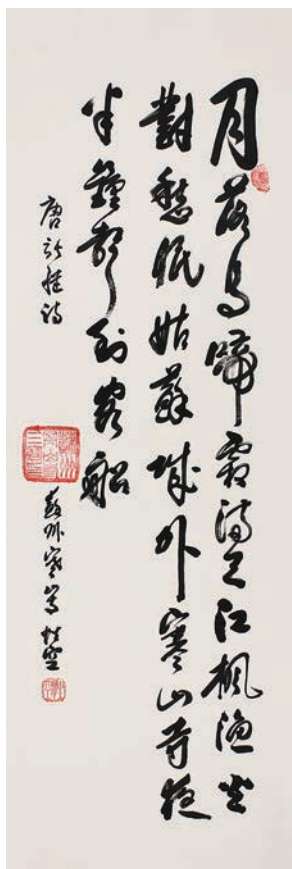 月落烏啼霜滿天江楓漁火
對愁眠姑蘇城外寒山寺夜
半鐘聲到客船
唐張継詩
蘇州寒山寺 性空